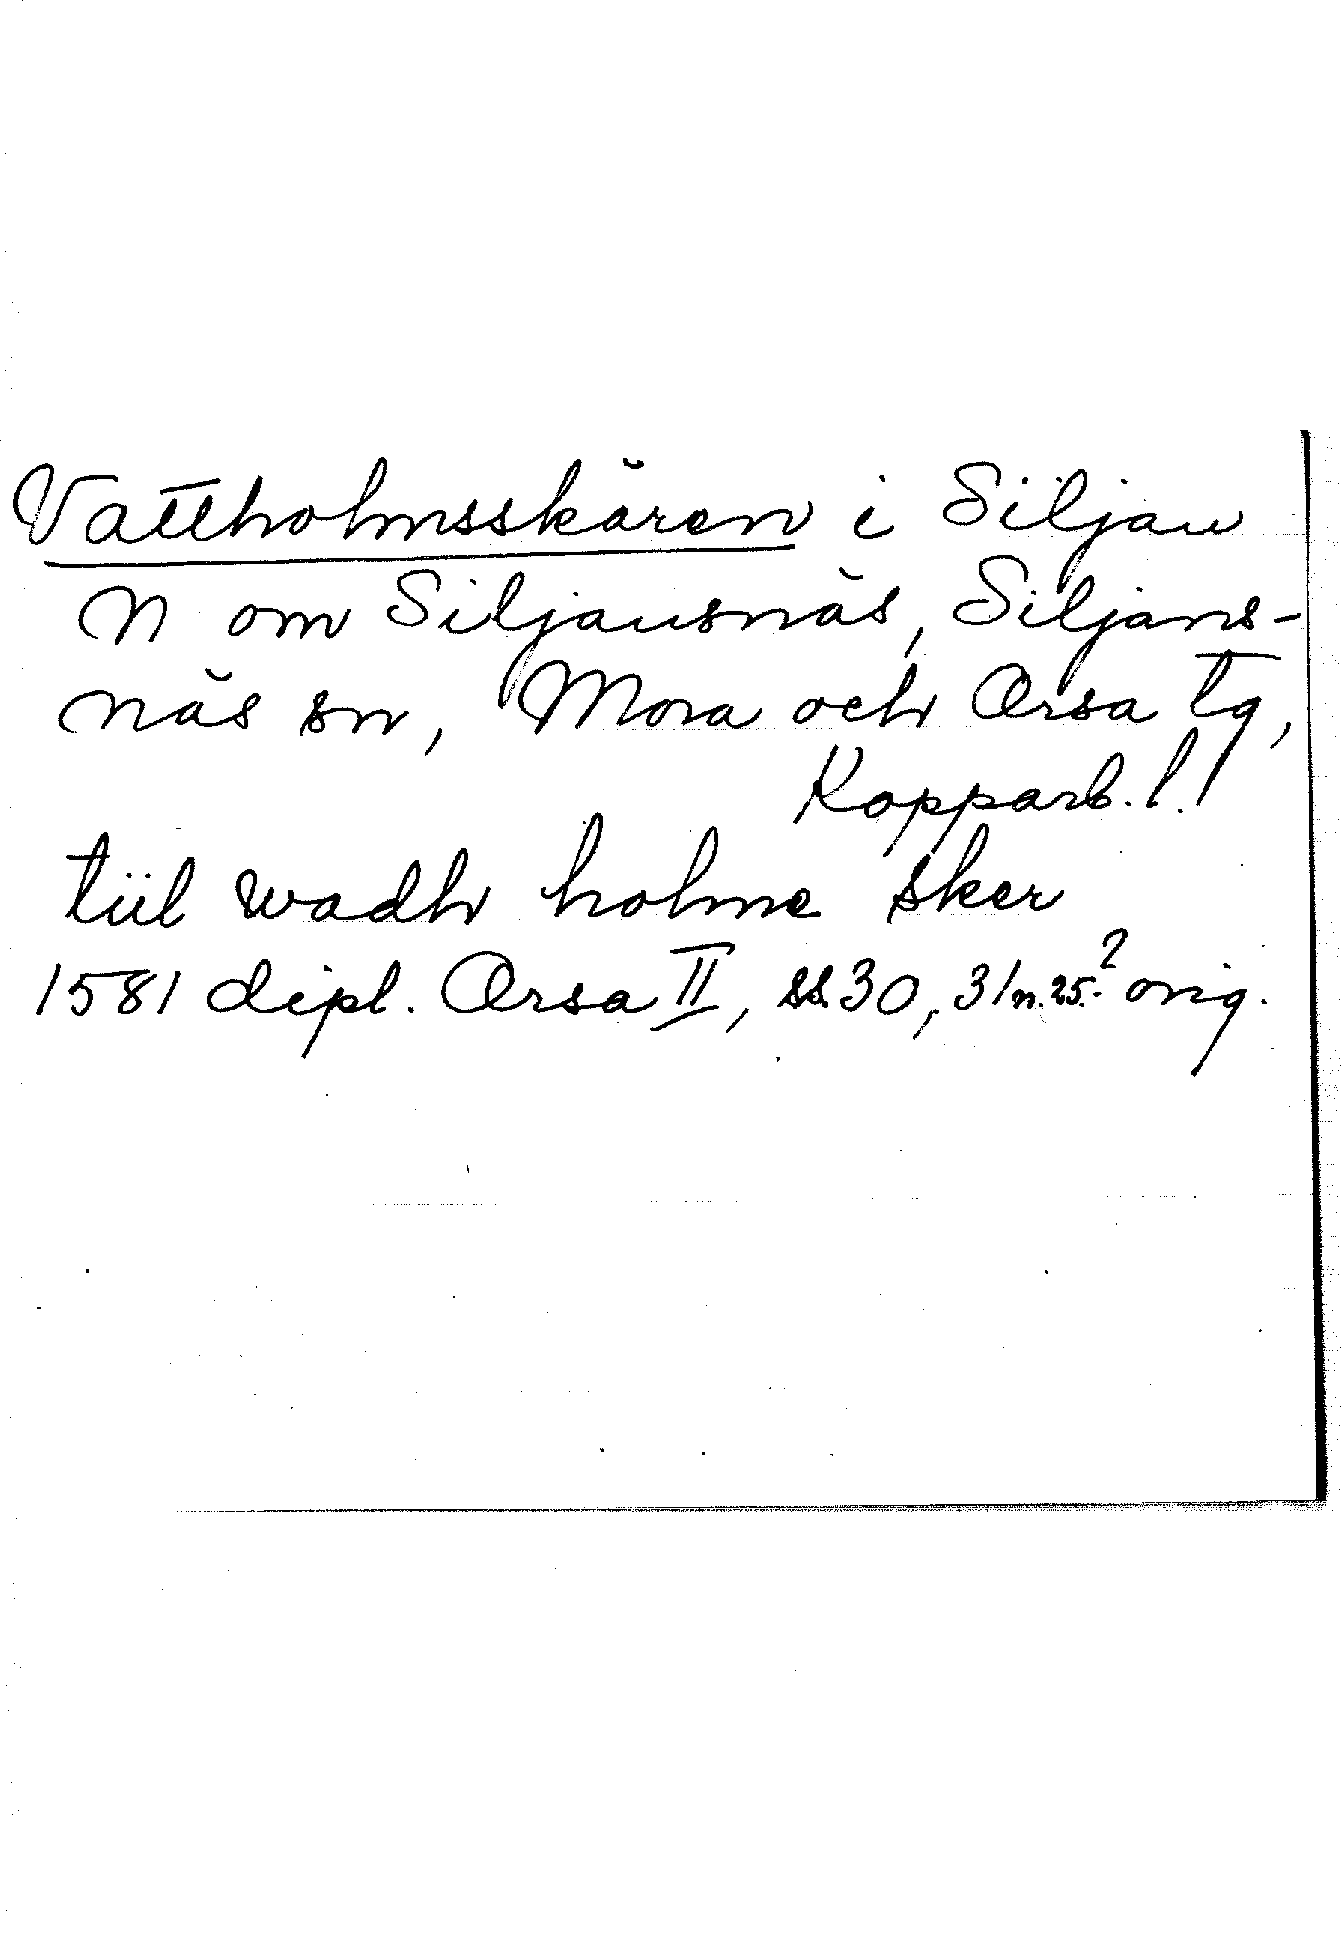 Vattholmsskären i Siljan
N om Siljansnäs, Siljans-
näs sn, Mora och Orsa tg,
Kopparb. l.
tiil wadh holme sker
1581 dipl. Orsa II, ss. 30, 31 n. 25.? orig.